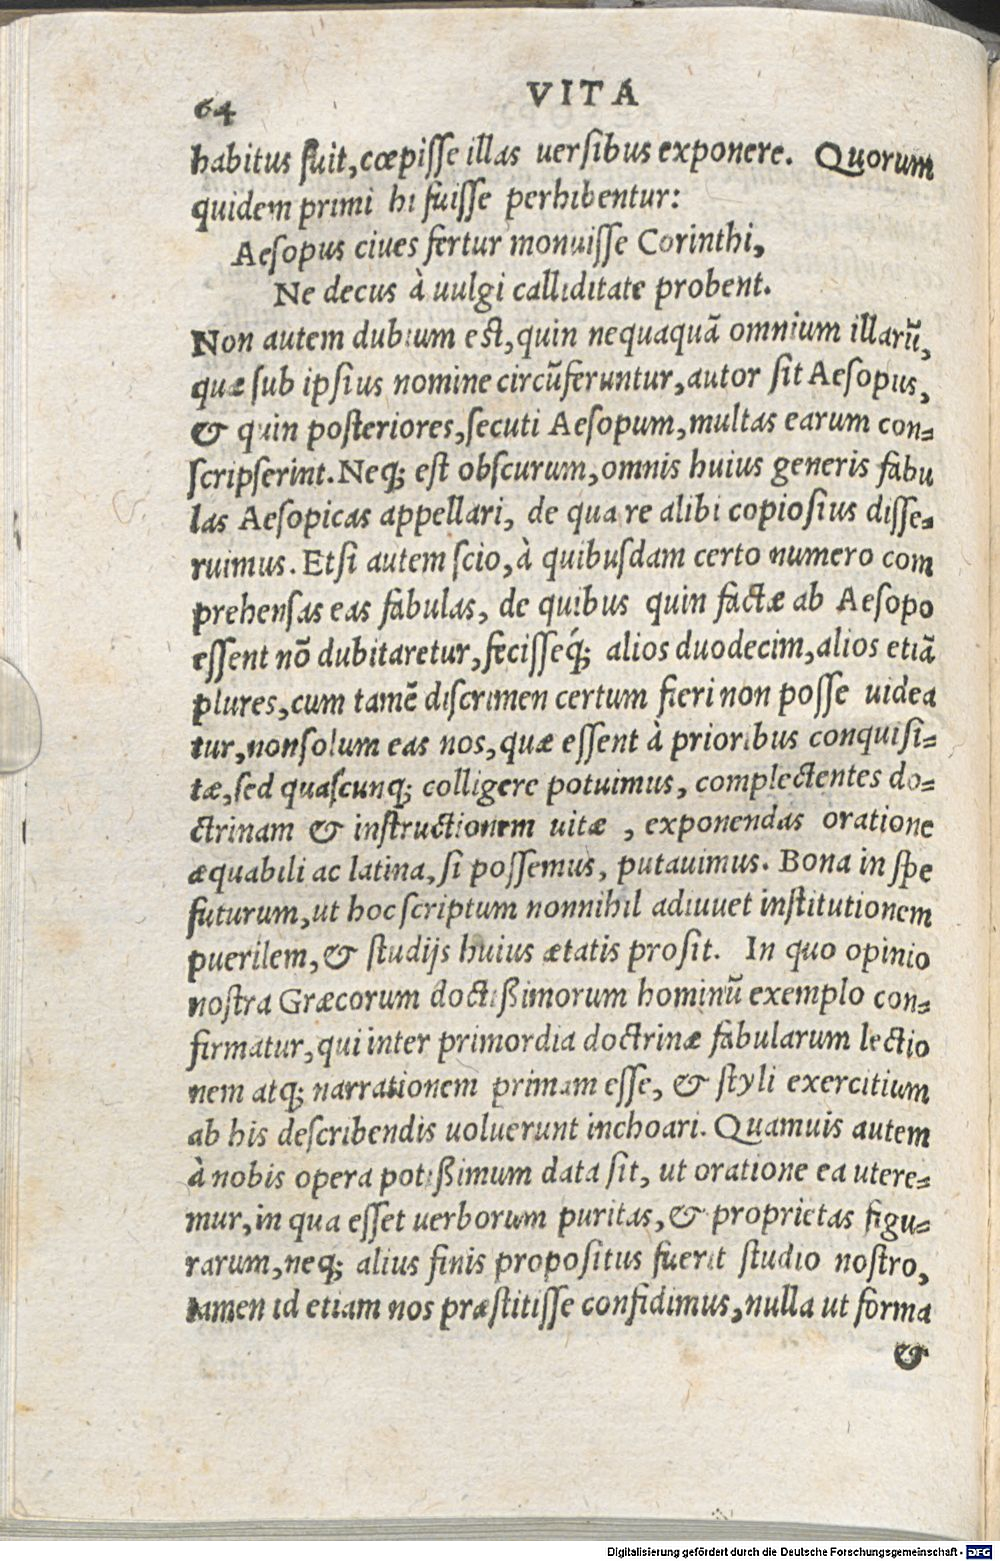 64
VITA
habitus fuit, cœpisse illas uersibus exponere. Quorum
quidem primi hi fuisse perhibentur:
Aesopus ciues fertur monuisse Corinthi,
Ne decus à uulgi calliditate probent.
Non autem dubium est, quin nequaquā omnium illarū,
quæ sub ipsius nomine circūferuntur, autor sit Aesopus,
& quin posteriores, secuti Aesopum, multas earum con=
scripserint. Neq; est obscurum, omnis huius generis fabu
las Aesopicas appellari, de qua re alibi copiosius disse=
ruimus. Etsi autem scio, à quibusdam certo numero com
prehensas eas fabulas, de quibus quin factæ ab Aesopo
essent nō dubitaretur, fecisseq́; alios duodecim, alios etiā
plures, cum tamē discrimen certum fieri non posse uidea
tur, non solum eas nos, quæ essent à prioribus conquisi=
tæ, sed quascunq; colligere potuimus, complectentes do=
ctrinam & instructionem uitæ, exponendas oratione
æquabili ac latina, si possemus, putauimus. Bona in spe
futurum, ut hoc scriptum nonnihil adiuuet institutionem
puerilem, & studijs huius ætatis prosit. In quo opinio
nostra Græcorum doctißimorum hominū exemplo con=
firmatur, qui inter primordia doctrinæ fabularum lectio
nem atq; narrationem primam esse, & styli exercitium
ab his describendis uoluerunt inchoari. Quamuis autem
à nobis opera potißimum data sit, ut oratione ea utere=
mur, in qua esset uerborum puritas, & proprietas figu=
rarum, neq; alius finis propositus fuerit studio nostro,
tamen id etiam nos præstitisse confidimus, nulla ut forma
&
Digitalisierung gefördert durch die Deutsche Forschungsgemeinschaft - DFG